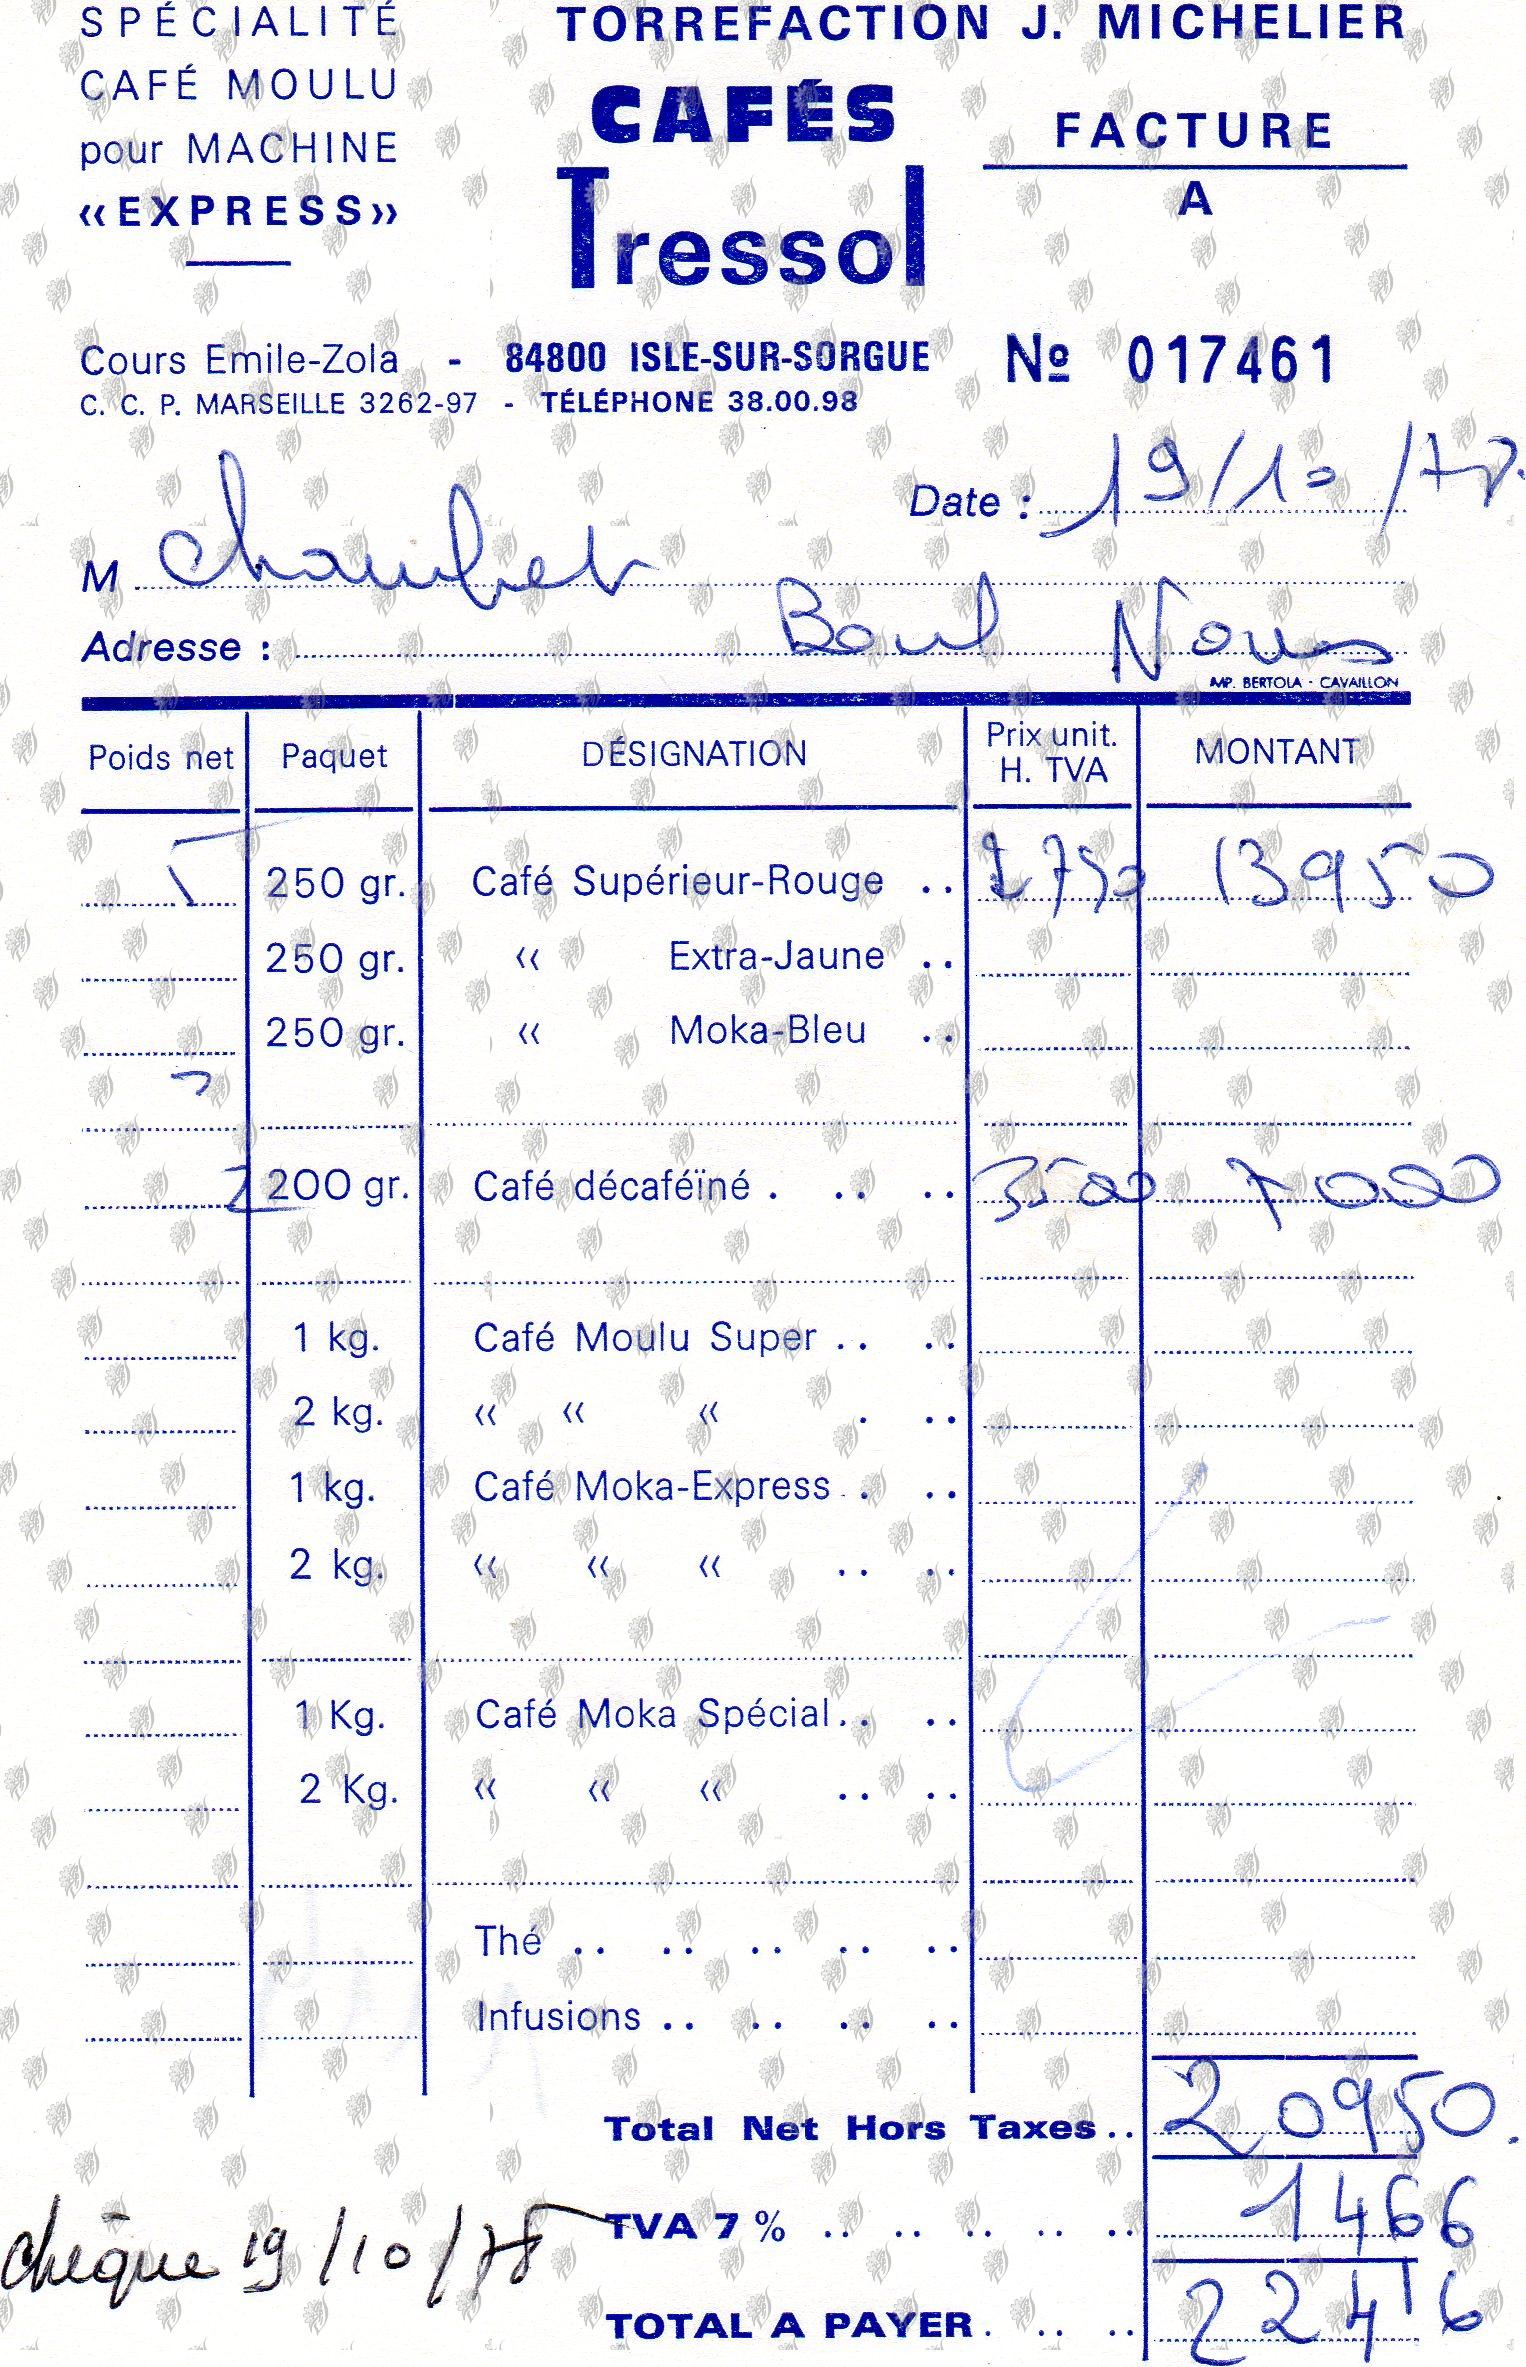 SPÉCIALITÉ
CAFÉ MOULU
pour MACHINE
«EXPRESS»
TORREFACTION J. MICHELIER
CAFÉS
Tressol
FACTURE
A
Cours Emile-Zola - 84800 ISLE-SUR-SORGUE
Nº 017461
C. C. P. MARSEILLE 3262-97 - TÉLÉPHONE 38.00.98
Date : 19/10/78
M
Adresse :
IMP. BERTOLA - CAVAILLON
Poids net Paquet DÉSIGNATION Prix unit. H. TVA MONTANT
5 250 gr. Café Supérieur-Rouge .. 13950
250 gr. « Extra-Jaune ..
250 gr. « Moka-Bleu ..
2 200 gr. Café décaféïné . .. .. 3500 7000
1 kg. Café Moulu Super .. ..
2 kg. « « « . ..
1 kg. Café Moka-Express . . ..
2 kg. « « « .. ..
1 Kg. Café Moka Spécial .. ..
2 Kg. « « « .. ..
Thé .. .. .. .. ..
Infusions .. .. .. ..
Total Net Hors Taxes .. 20950
TVA 7 % .. .. .. .. .. 1466
chèque 19/10/78
TOTAL A PAYER . .. .. 22416